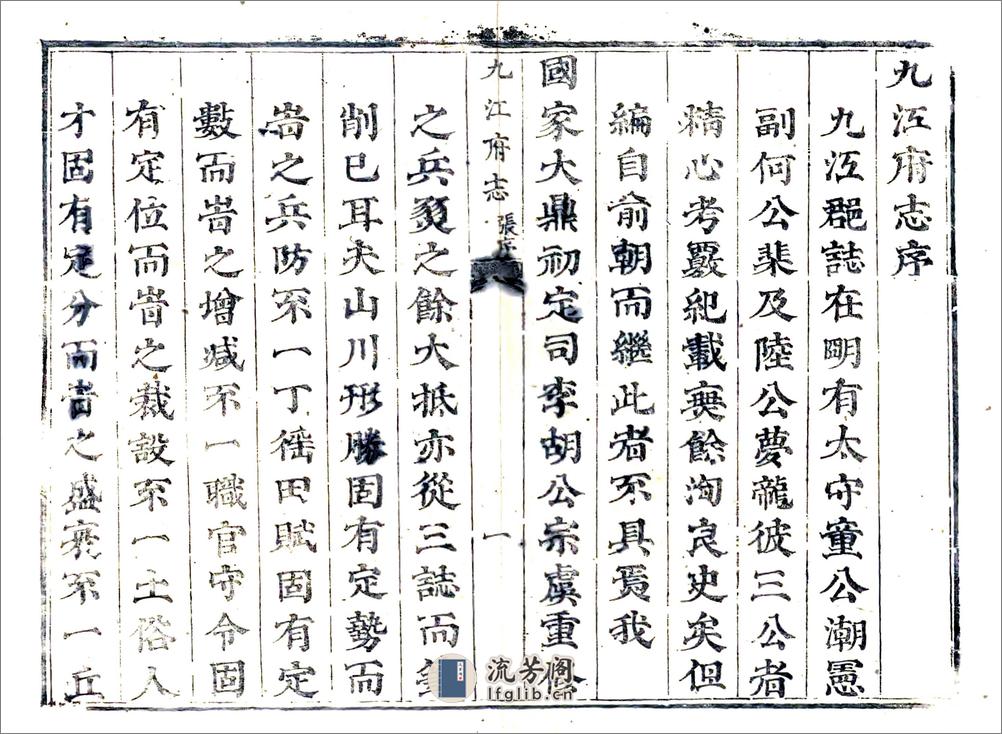 九江府志序
九江郡誌在明有太守童公潮憲
副何公棐及陸公夢龍彼三公者
精心考覈紀載奭餘洵良史矣但
編自前朝而繼此者不具焉我
國家大鼎初定司李胡公宗虞重
九江府志 張序 一
之兵燹之餘大抵亦從三誌而筆
削巳耳夫山川形勝固有定勢而
旹之兵防不一丁徭田賦固有定
數而旹之增減不一職官守令固
有定位而旹之裁設不一土俗人
才固有定分而旹之盛衰不一丘
流芳阁
lfglib.cn